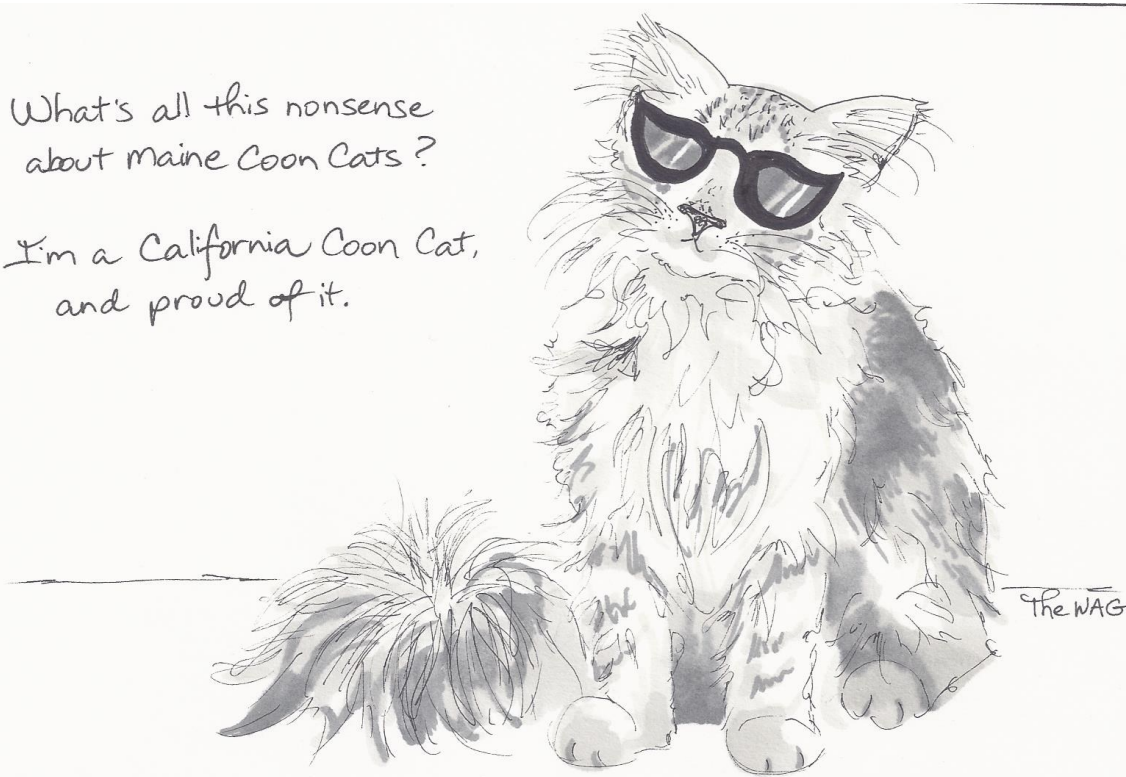 What's all this nonsense
about Maine Coon Cats?
I'm a California Coon Cat,
and proud of it.
The WAG